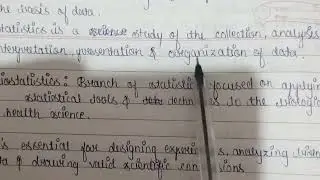 the basis of data.
Statistics is a science study of the collection, analysis
interpretation, presentation & organization of data.
Biostatistics: Branch of statistic focused on applying
statistical tools & to the
health science.
is essential for designing analyzing
& drawing valid scientific